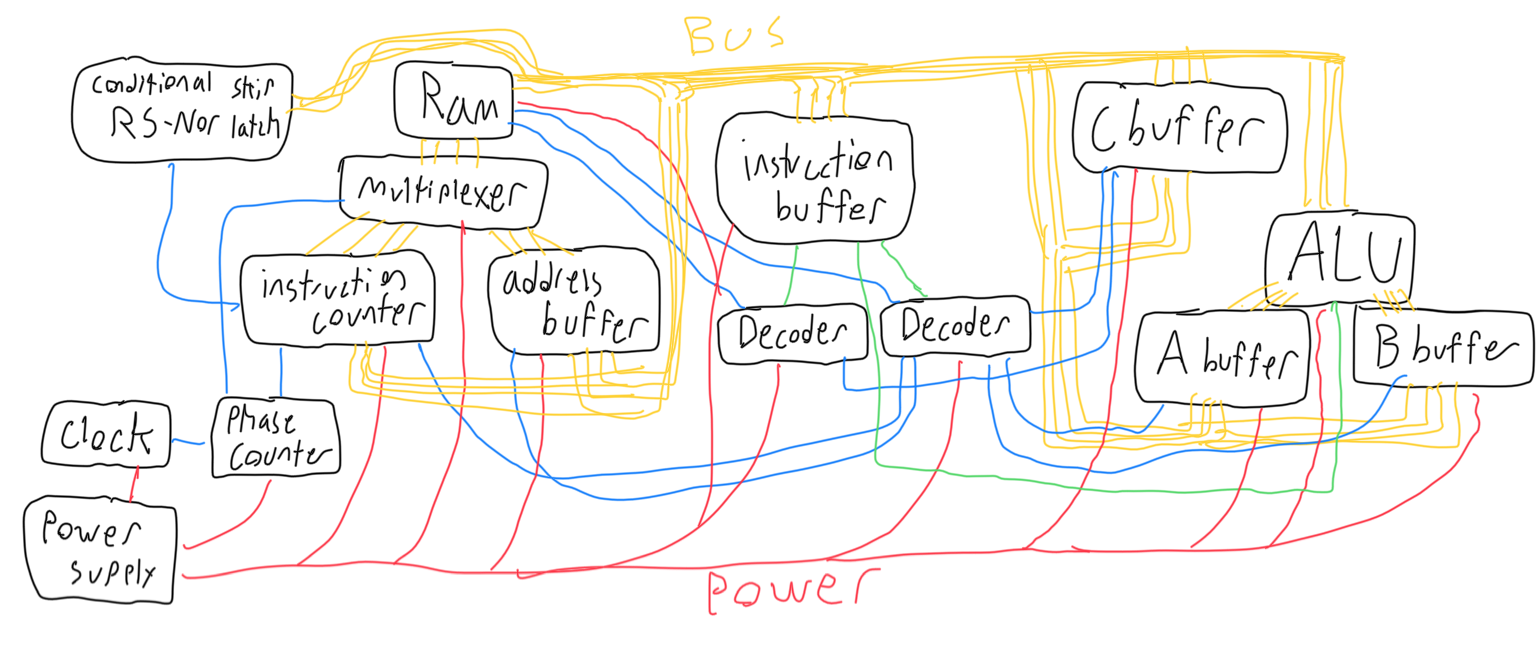 Bus
conditional skip
RS-Nor latch
Ram
multiplexer
instruction
counter
address
buffer
instruction
buffer
Decoder
Decoder
C buffer
ALU
A buffer
B buffer
Clock
Phase
Counter
Power
supply
Power